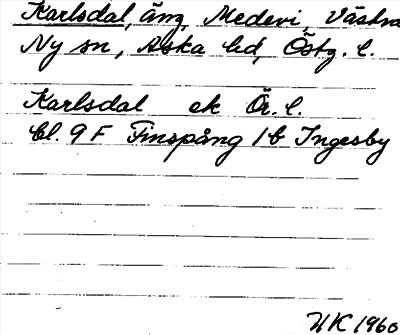 Karlsdal, äng, Medevi, Västra
Ny sn, Aska hd, Östg. l.
Karlsdal ek Ör. l.
bl. 9 F Finspång 1 b Ingesby
HK 1960